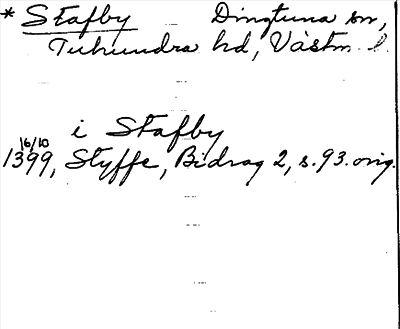 * Stafby Dingtuna sn,
Tuhundra hd, Västm. l.
i Stafby
16/10
1399, Styffe, Bidrag 2, s. 93. orig.